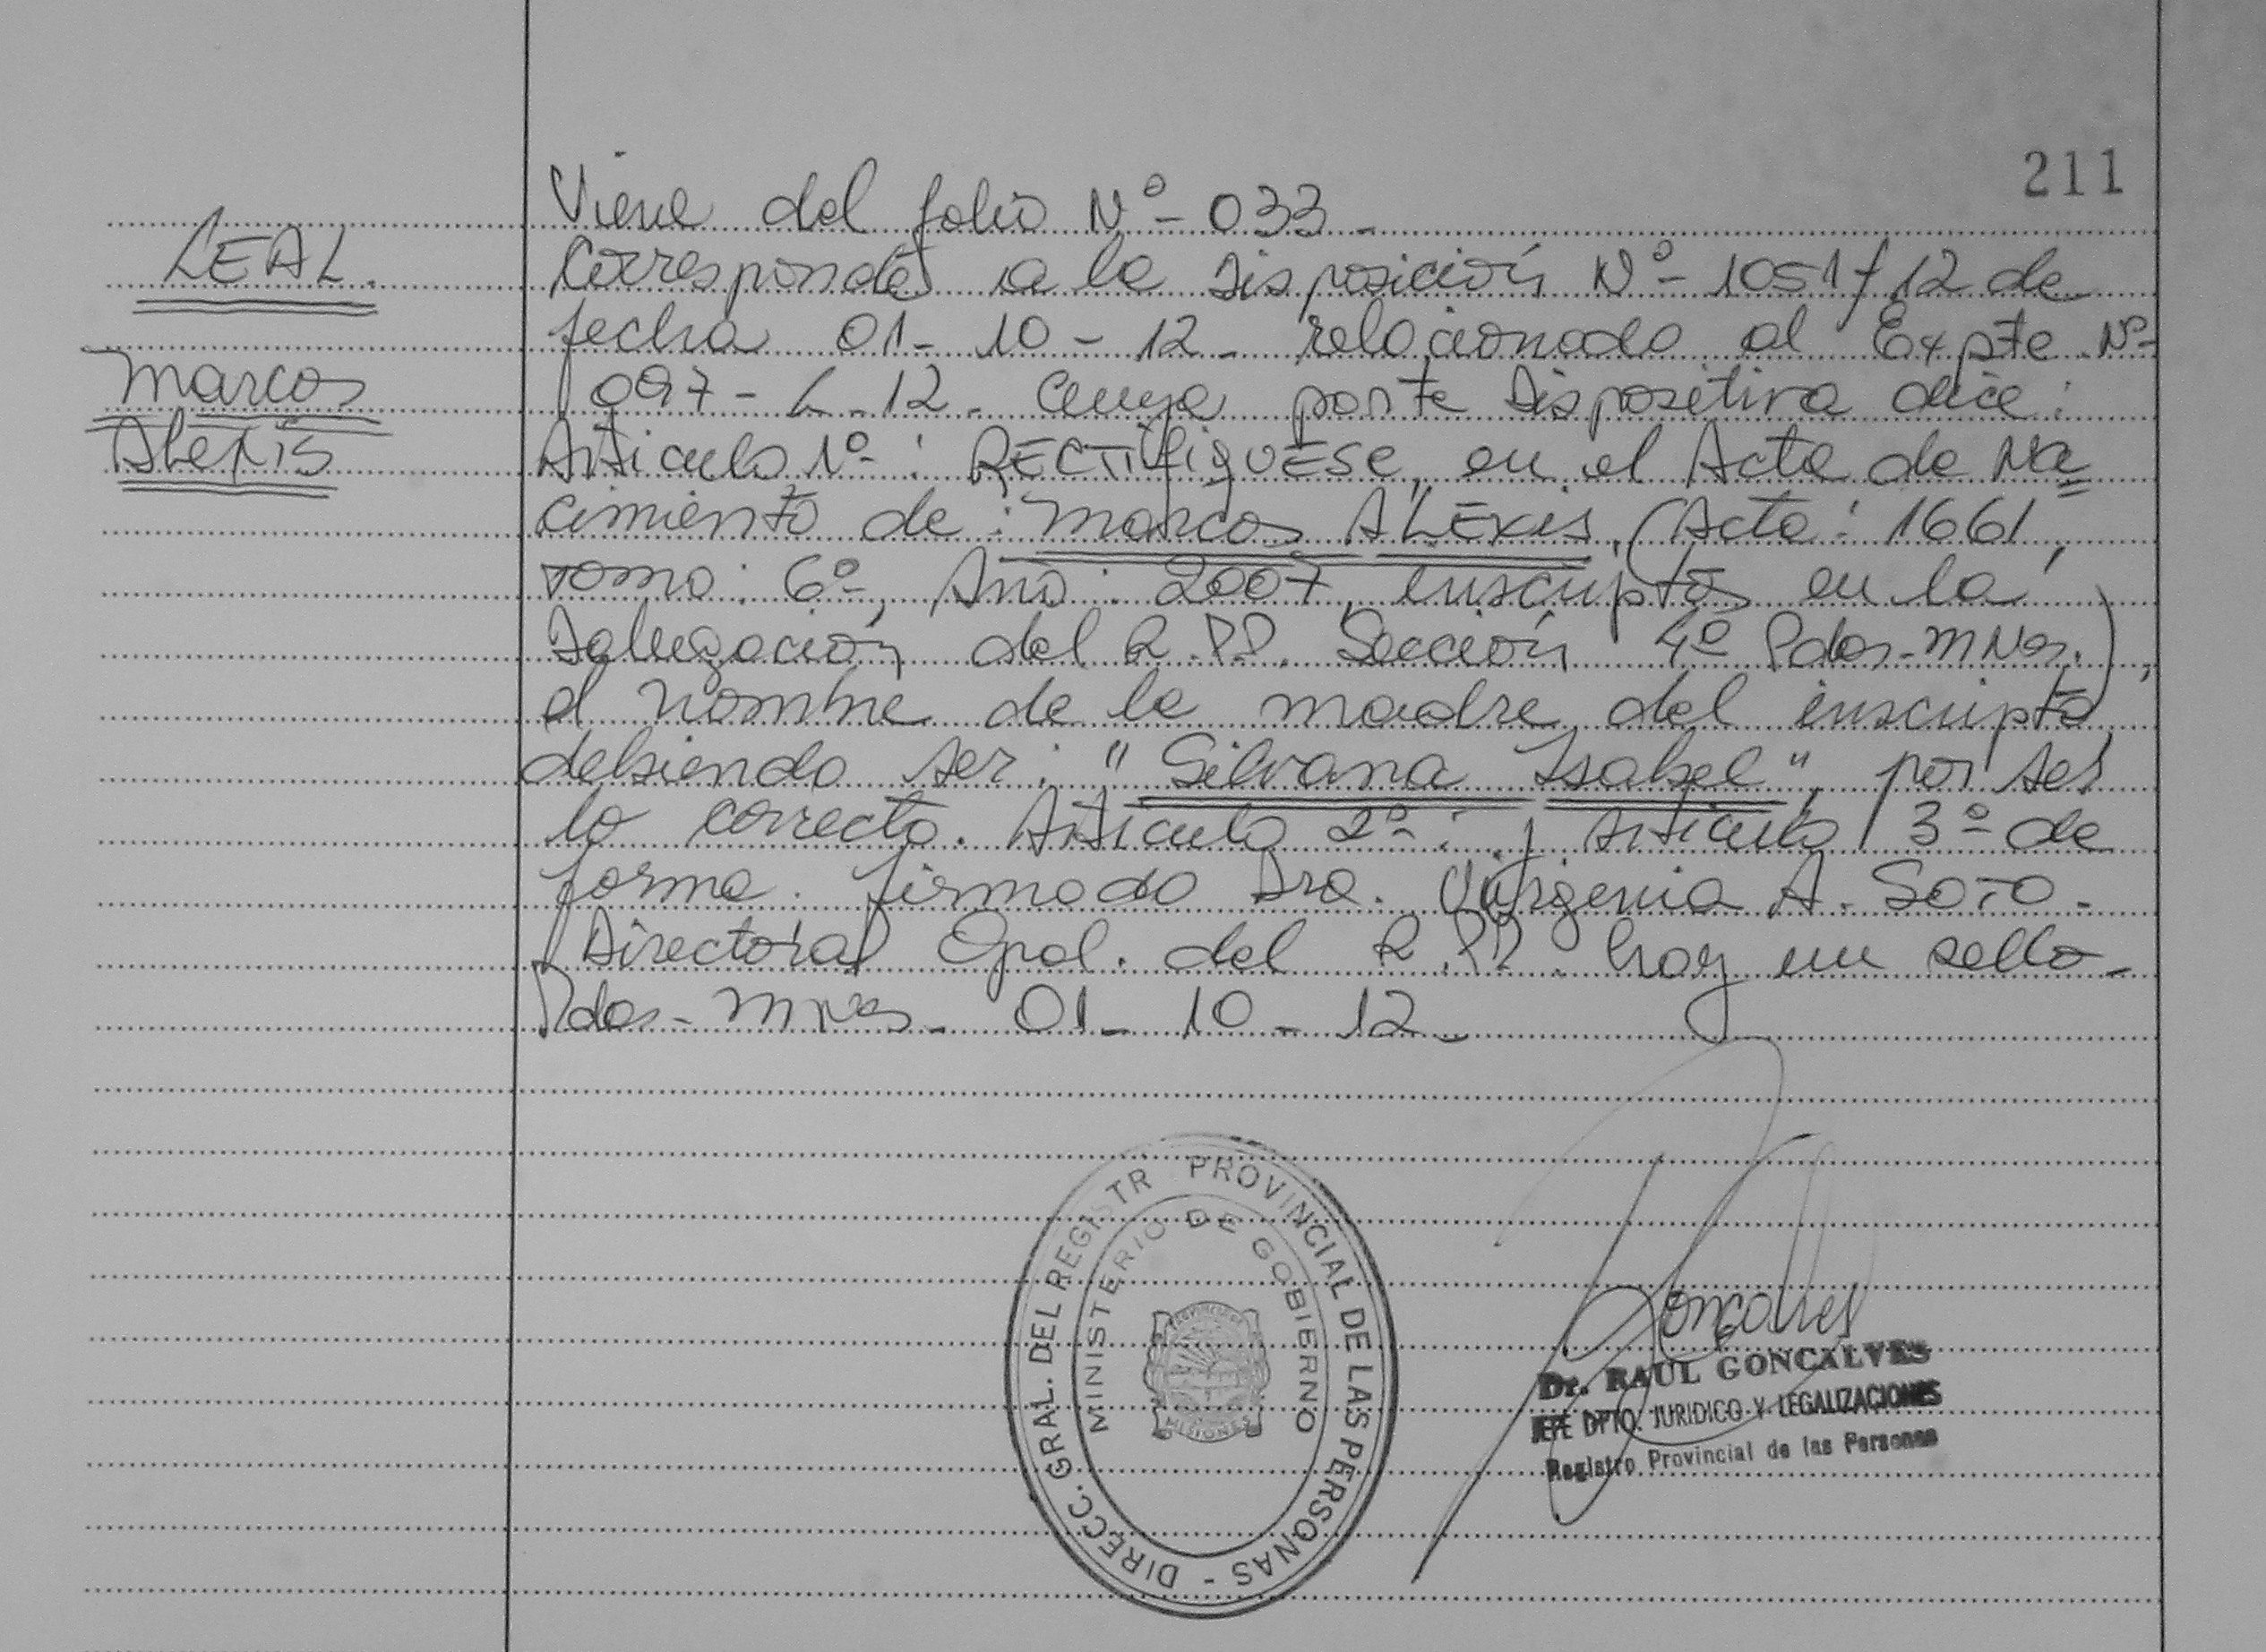 211
LEAL.
Marcos
Alexis
Viene del folio Nº- 033 -
Corresponde a la Disposición Nº- 1051/12 de
fecha 01- 10 - 12 - relacionado al Expte Nº-
097 - L - 12 - Cuya parte Dispositiva dice:
Articulo 1º- : RECTIFIQUESE en el Acta de Na
cimiento de : Marcos ALEXIS, (Acta: 1661,
Tomo: 6º-, Año: 2007, inscripto en la
Delegación del R.P.P. Sección 4º Pdas-Mnes.),
el nombre de la madre del inscripto
debiendo ser: "Silvana Isabel", por ser
lo correcto. Articulo 2º- : y Articulo 3º- de
forma. firmado Dra. Virginia A. SOTO -
Directora Gral. del R.PP. hay un sello -
Pdas- Mnes - 01 - 10 - 12 -
DIRECC. GRAL. DEL REGISTR PROVINCIAL DE LAS PERSONAS -
MINISTERIO DE GOBIERNO
PROVINCIA DE
MISIONES
Goncalves
Dr. RAUL GONCALVES
JEFE DPTO. JURIDICO Y LEGALIZACIONES
Registro Provincial de las Personas